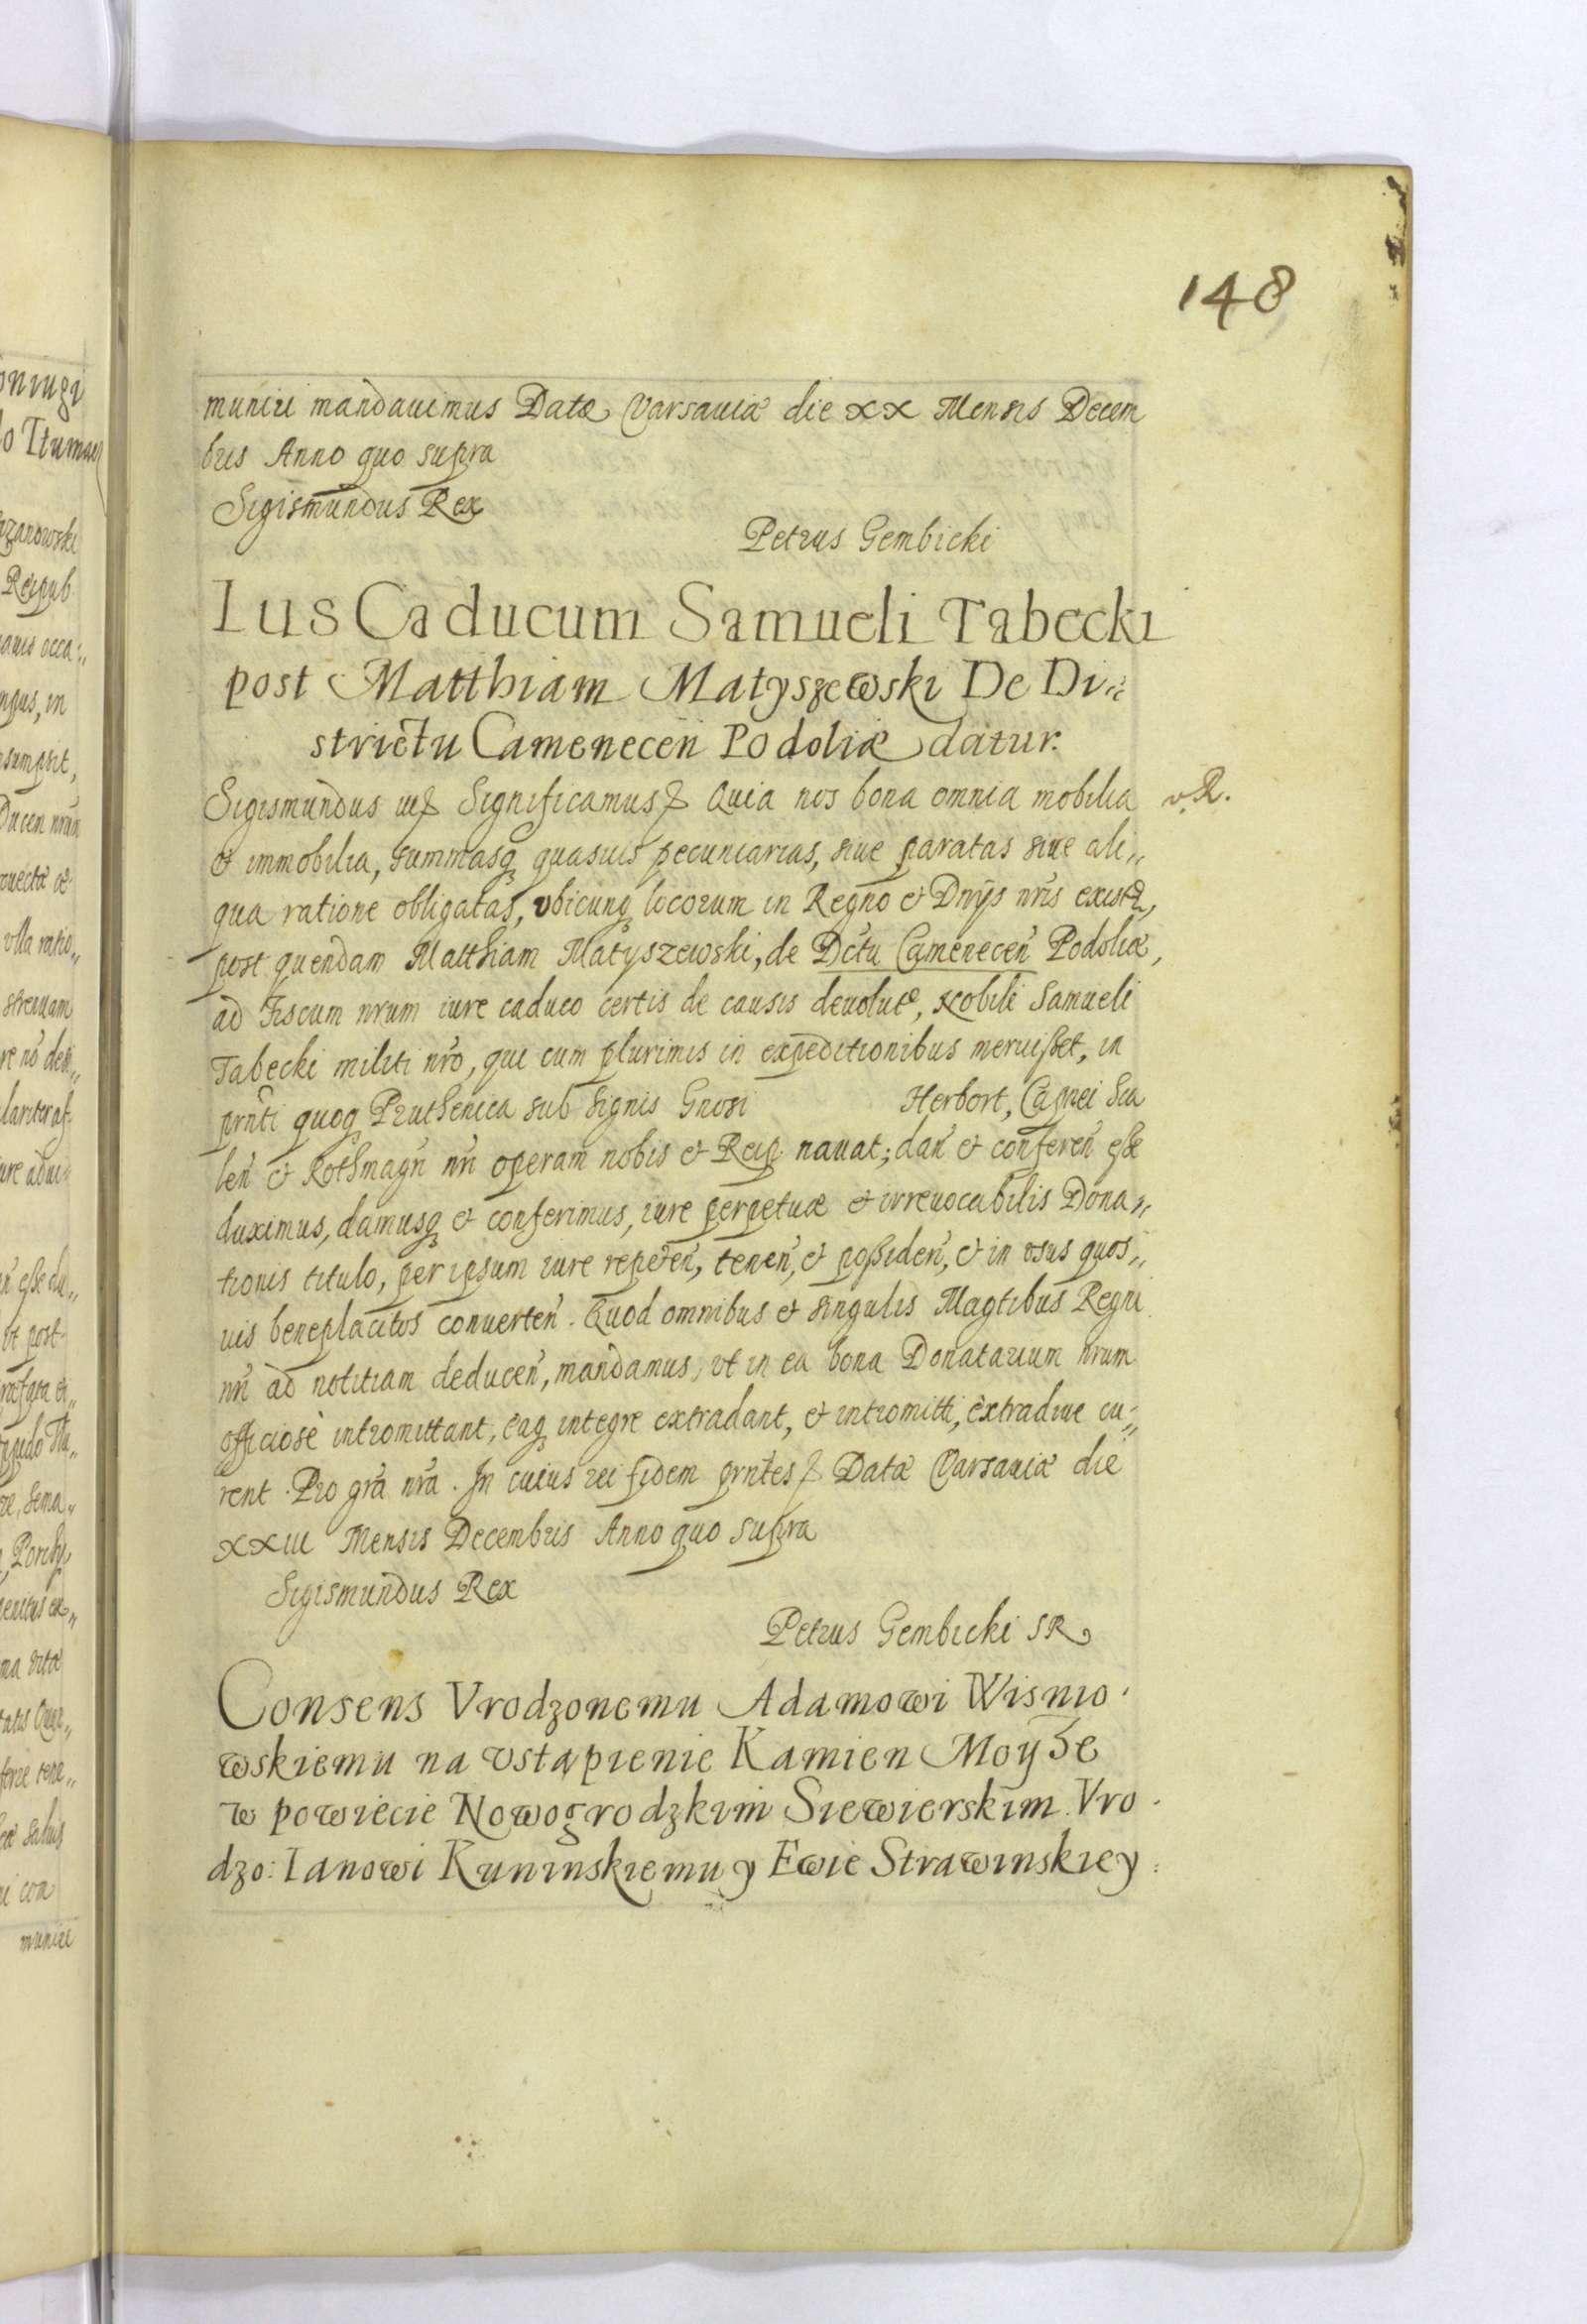 148
muniri mandauimus Datæ Varsauiæ die XX Mensis Decem
bris Anno quo supra
Sigismundus Rex
Petrus Gembicki
Ius Caducum Samueli Tabecki
post Matthiam Matyszewski De Di„
strictu Camenecen̄ Podoliæ datur.
Sigismundus iii Significamus Quia nos bona omnia mobilia v. R.
et immobilia, summasq quasuis pecuniarias, siue paratas siue ali„
qua ratione obligatas, vbicunq locorum in Regno et Dnijs nris existen,
post quendam Matthiam Matyszewski, de Dctu Camenecen̄ Podoliæ,
ad Fiscum nrum iure caduco certis de causis deuoluta, Nobili Samueli
Tabecki militi nro, qui cum plurimis in expeditionibus meruisset, in
prnti quoq Pruthenica sub signis Gnosi Herbort, Capnei Sca
len̄ et Rothmagri nri operam nobis et Reip nauat; dan̄ et conferen̄ esse
duximus, damusq et conferimus, iure perpetuæ et irreuocabilis Dona„
tionis titulo, per ipsum iure repeten̄, tenen̄, et possiden̄, et in vsus quos„
uis beneplacitos conuerten̄. Quod omnibus et singulis Magtibus Regni
nri ad notitiam deducen̄, mandamus, vt in ea bona Donatarium nrum
officiosè intromittant, eaq integre extradant, et intromitti, extradiue cu„
rent. Pro gra nra. In cuius rei fidem prntes Datæ Varsauiæ die
XXIII Mensis Decembris Anno quo supra
Sigismundus Rex
Petrus Gembicki SR
Consens Vrodzonemu Adamowi Wisnio
wskiemu na vstąpienie Kamien Moyże
w powiecie Nowogrodzkim Siewierskim Vro
dzo: Ianowi Kuninskiemu y Ewie Strawinskiey